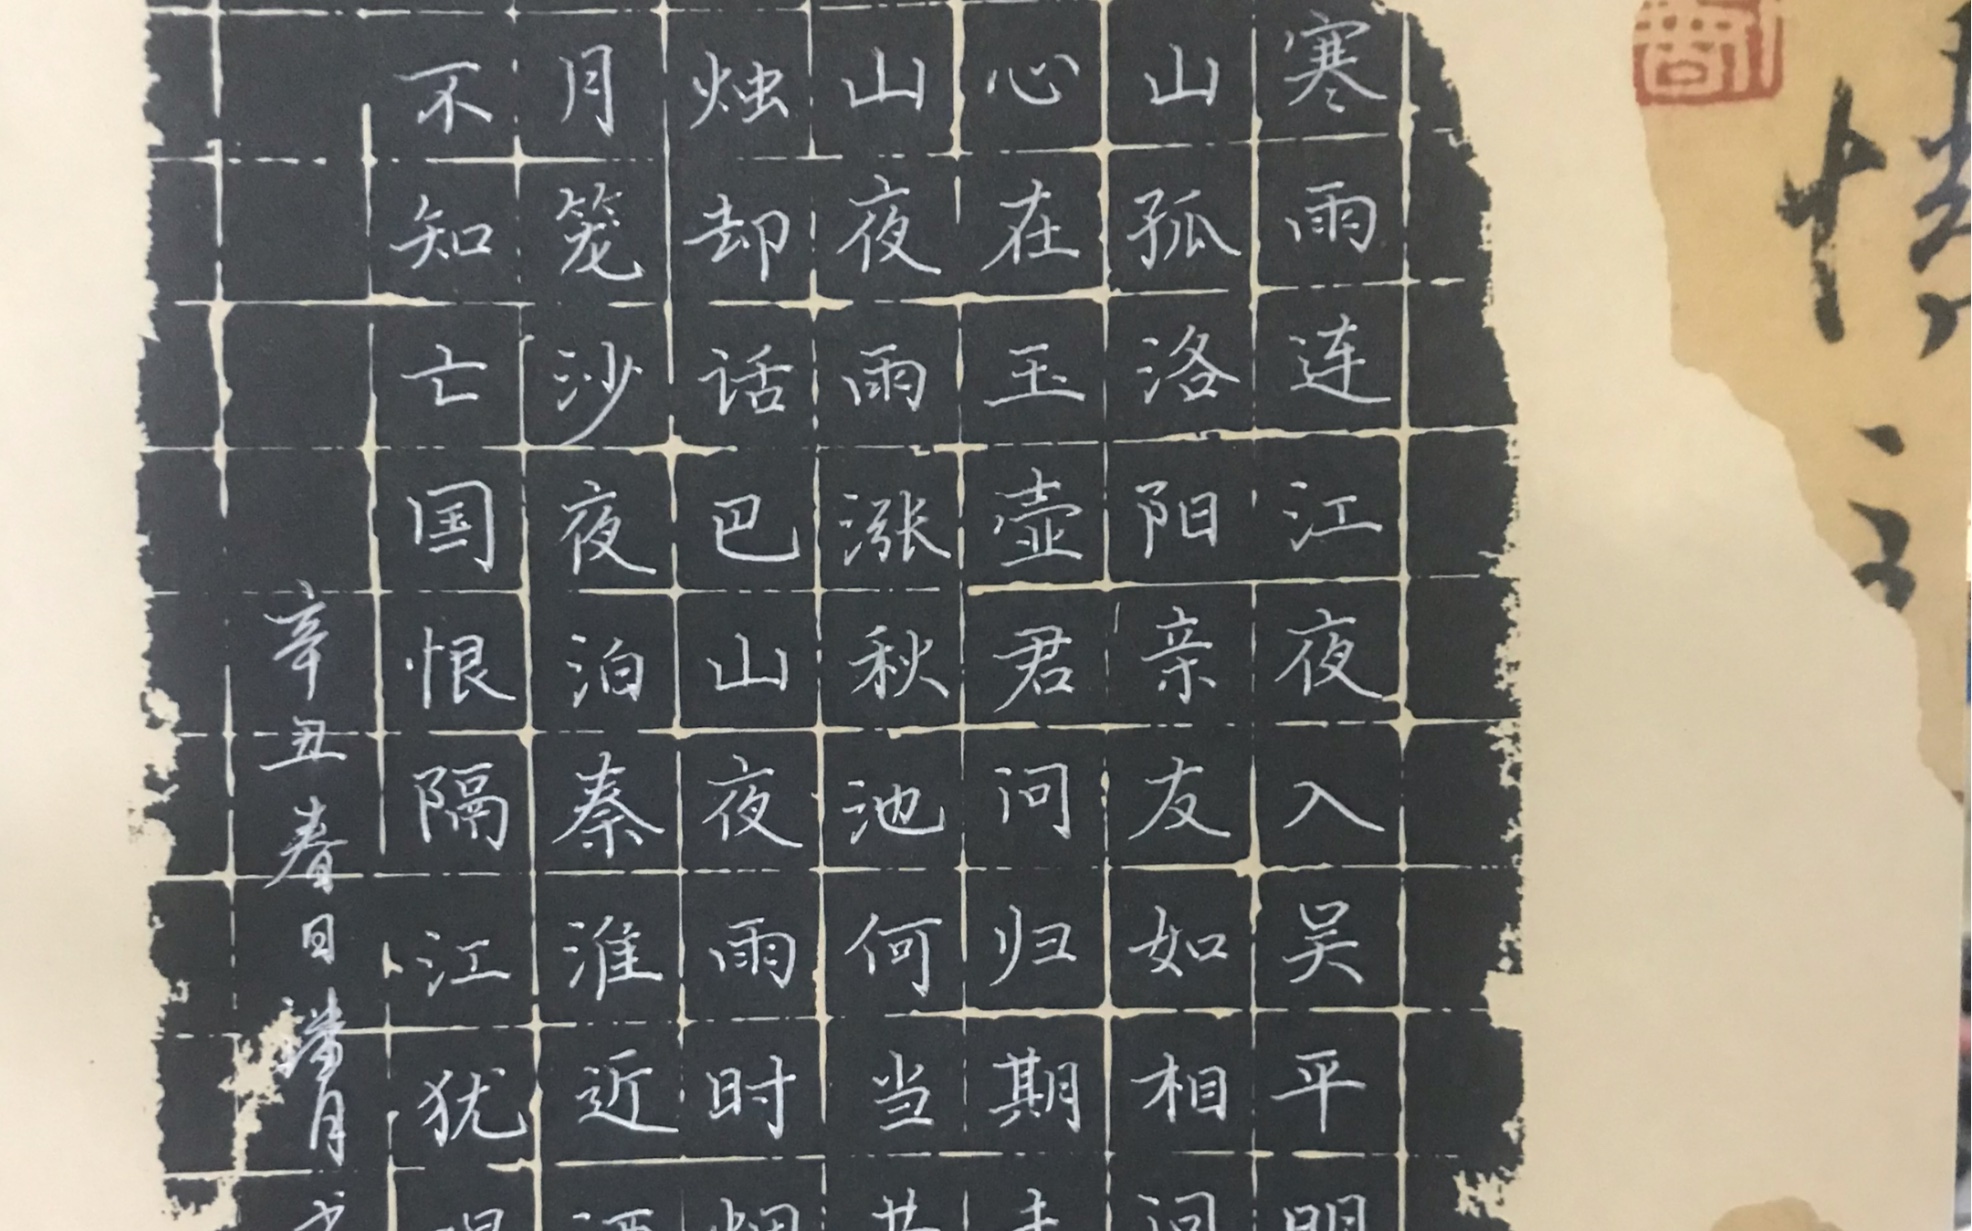 寒雨连江夜入吴平明
山孤洛阳亲友如相问
心在玉壶君问归期未
山夜雨涨秋池何当共
烛却话巴山夜雨时烟
月笼沙夜泊秦淮近酒
不知亡国恨隔江犹唱
辛丑春日月